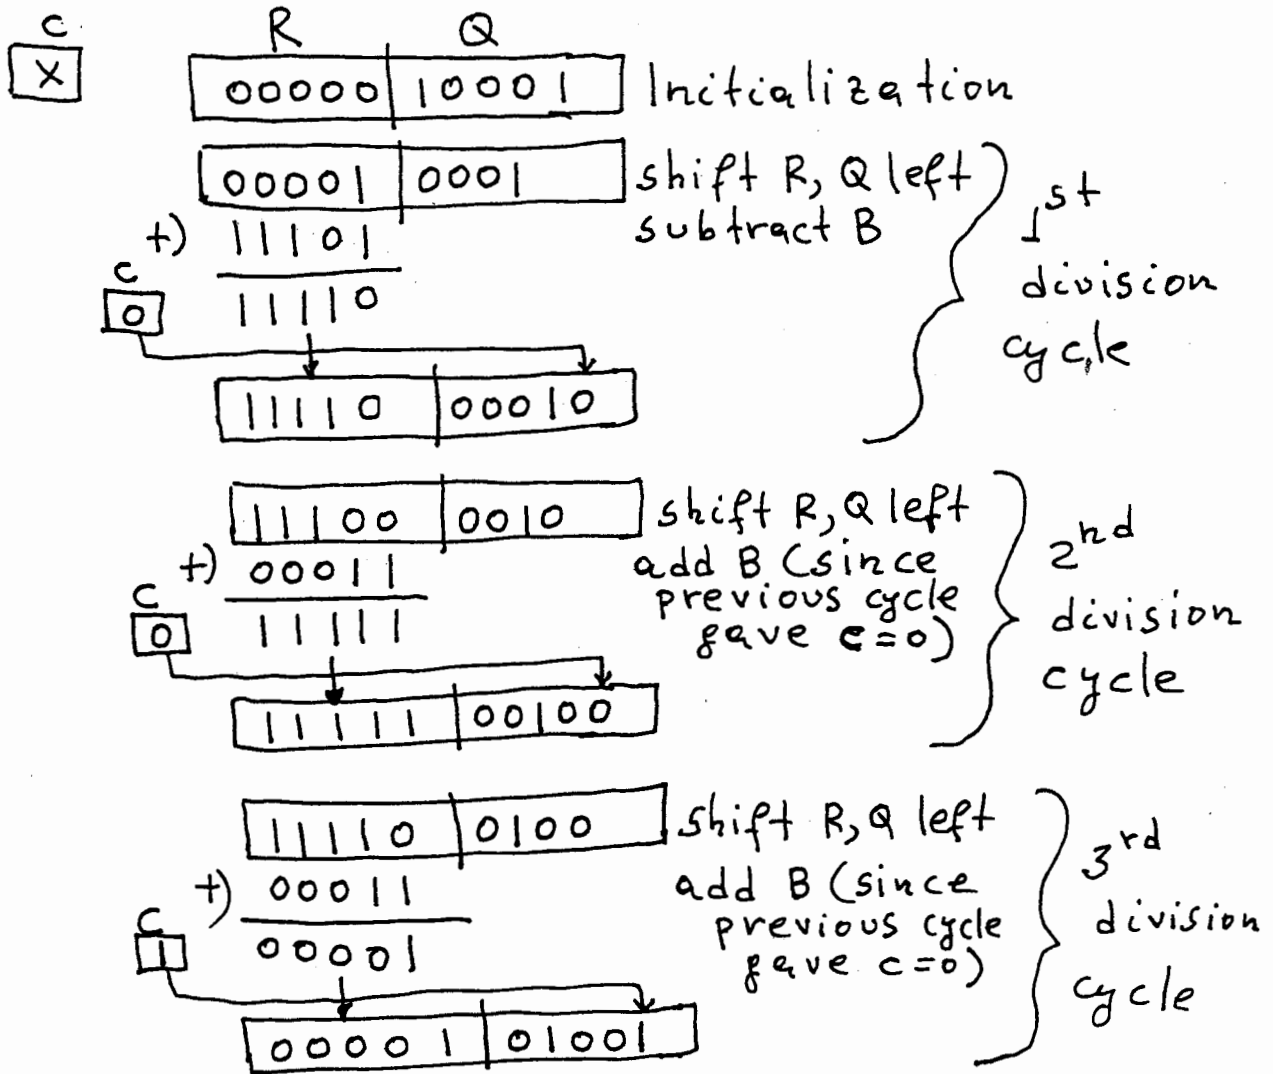 C
R Q
X
00000 10001 Initialization
00001 0001 shift R, Q left
+) 11101 subtract B
C
0 11110
11110 00010
1st
division
cycle
11100 0010 shift R, Q left
+) 00011 add B (since
previous cycle
gave c=0)
C
0 11111
11111 00100
2nd
division
cycle
11110 0100 shift R, Q left
+) 00011 add B (since
previous cycle
gave c=0)
C
1 00001
00001 01001
3rd
division
cycle